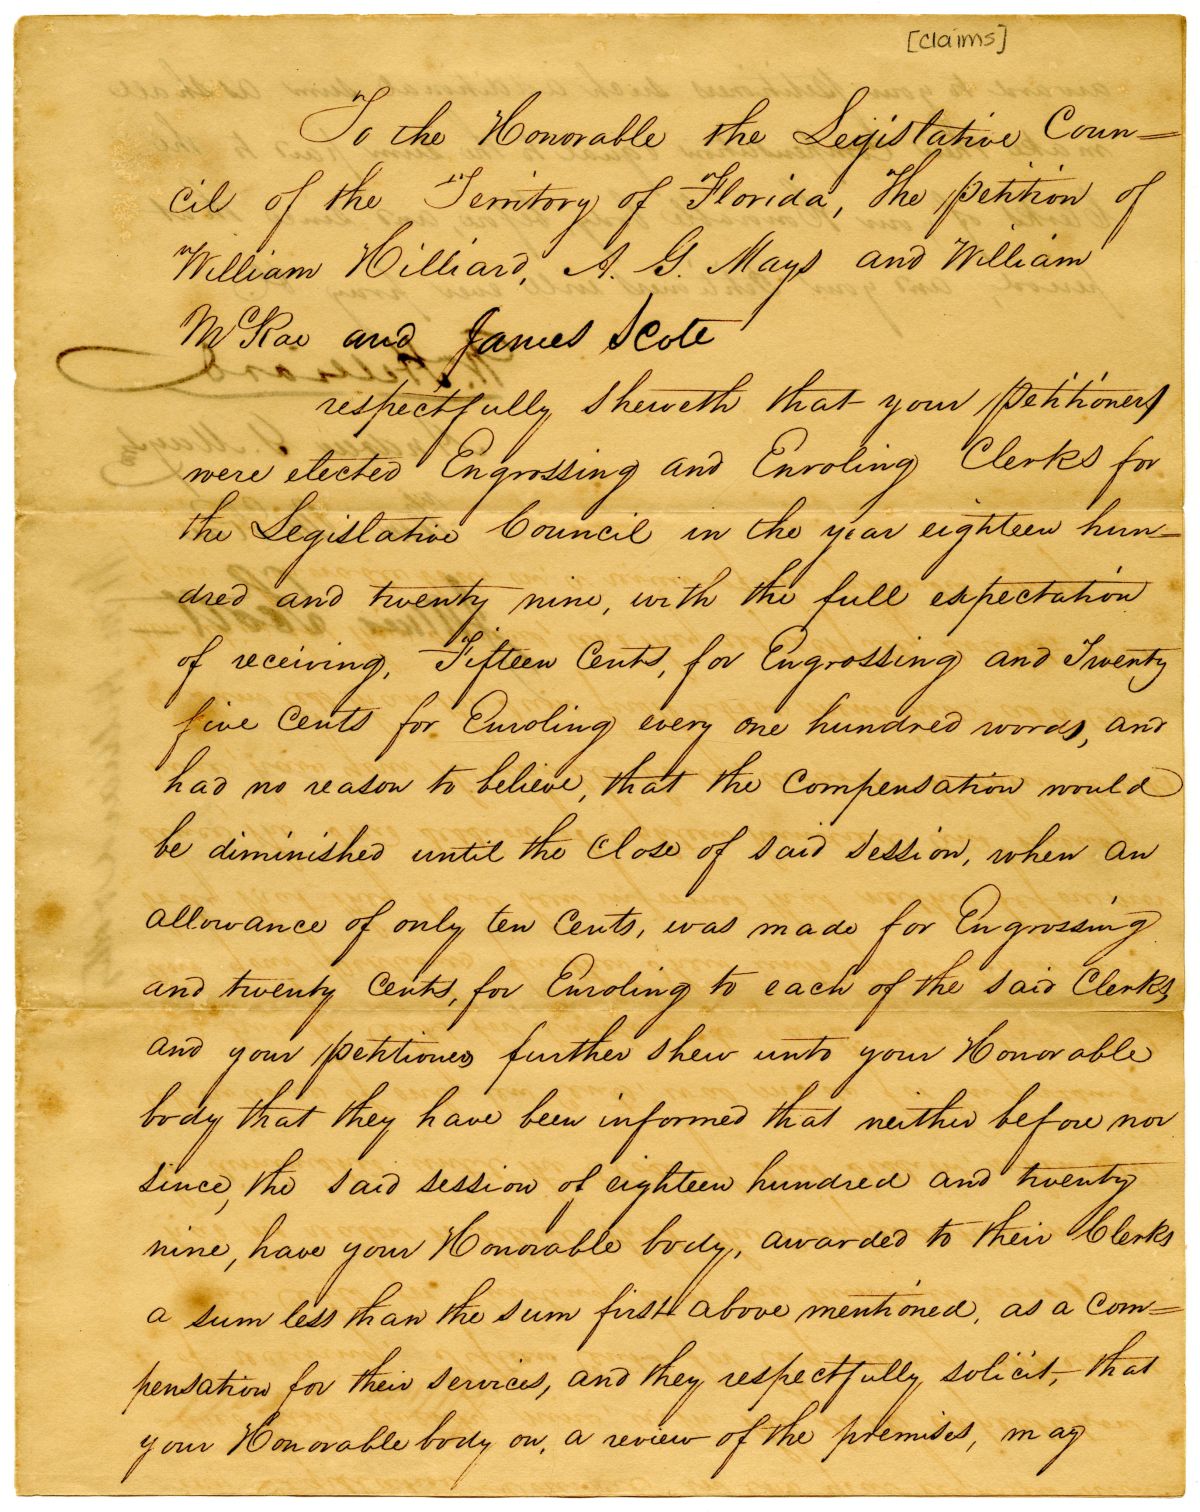 [claims]
To the Honorable the Legislative Coun=
cil of the Territory of Florida, The petition of
William Hilliard, A. G. Mays and William
McRae and James Scote
respectfully sheweth that your petitioners
were elected Engrossing and Enroling Clerks for
the Legislative Council in the year eighteen hun=
dred and twenty nine, with the full expectation
of receiving, Fifteen Cents, for Engrossing and Twenty
five Cents for Enroling every one hundred words, and
had no reason to believe, that the compensation would
be diminished until the close of said session, when an
allowance of only ten Cents, was made for Engrossing
and twenty Cents, for Enroling to each of the said Clerks,
and your petitioners further shew unto your Honorable
body that they have been informed that neither before nor
since, the said session of eighteen hundred and twenty
nine, have your Honorable body, awarded to their Clerks
a sum less than the sum first above mentioned, as a com=
pensation for their services, and they respectfully solicit, that
your Honorable body on, a review of the premises, may